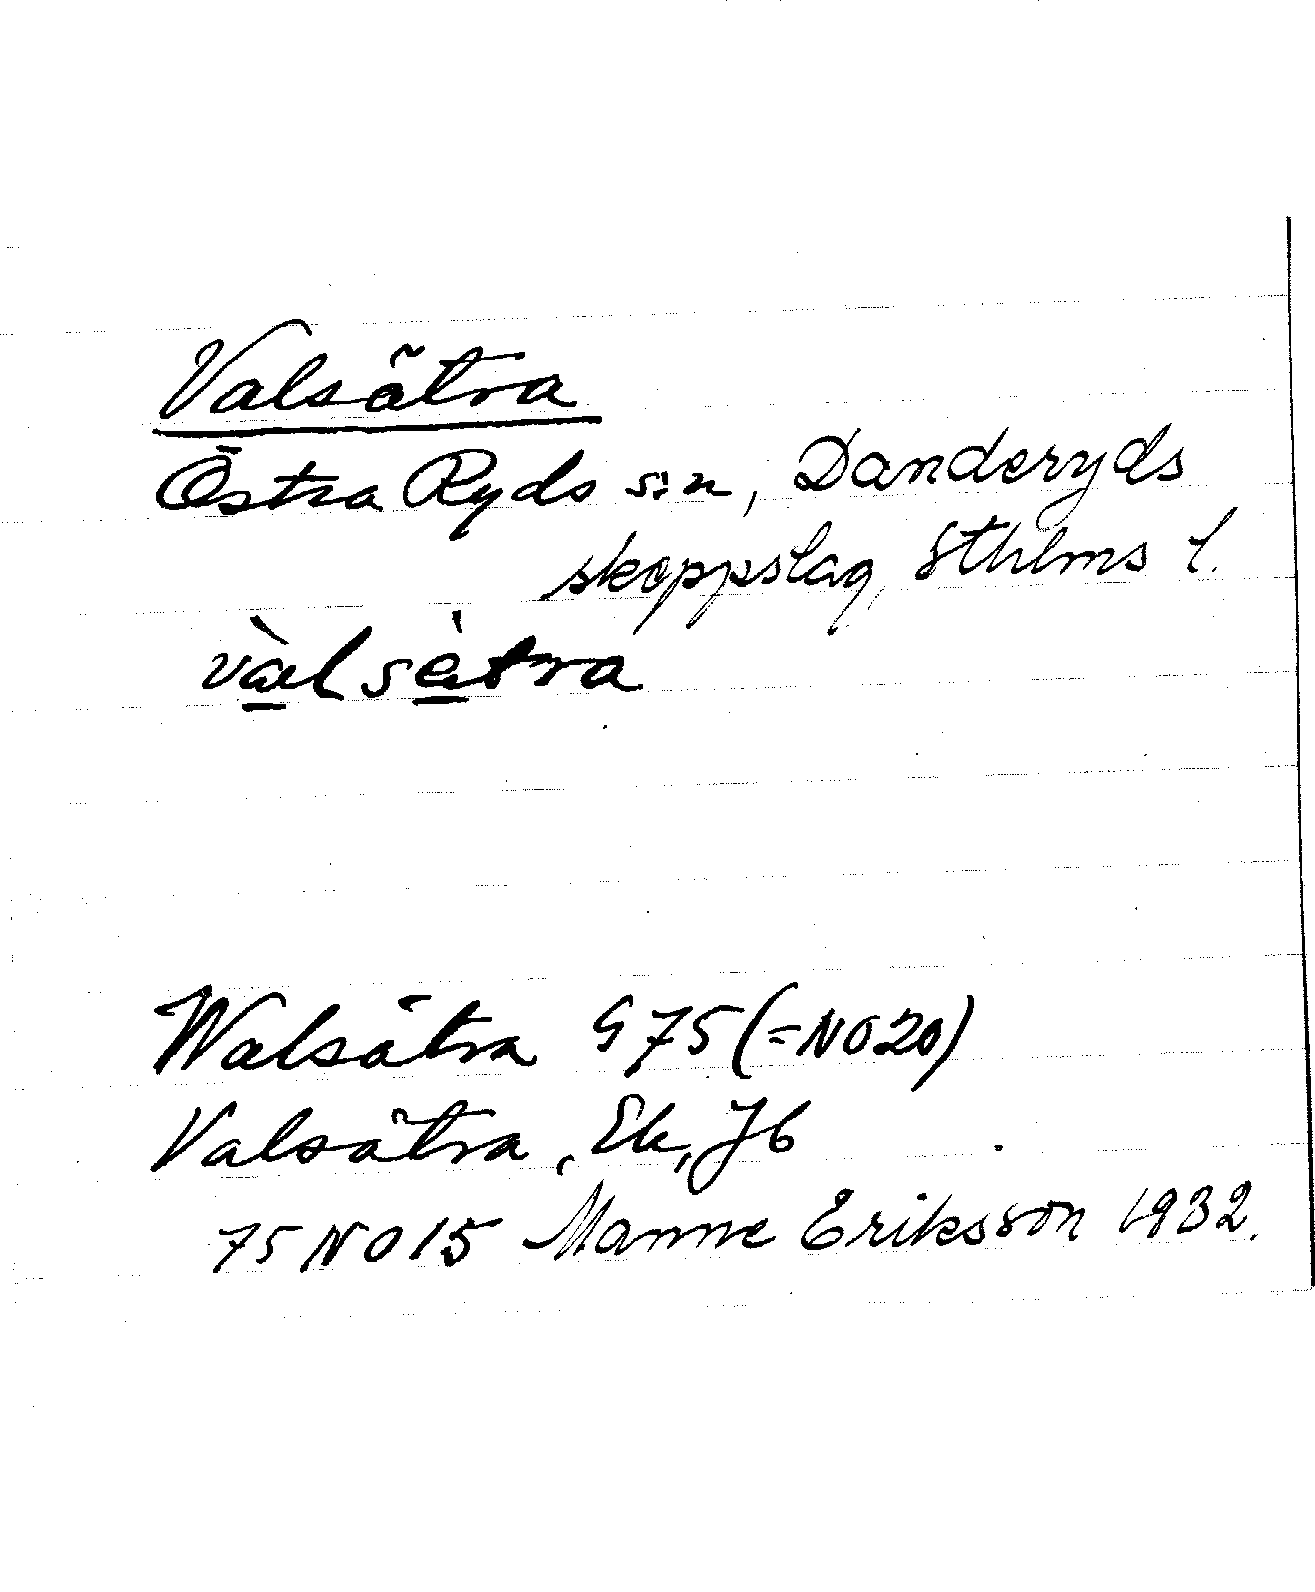 Valsätra
Östra Ryds s:n, Danderyds
skeppslag, Sthlms l.
vàlsètra
Walsätra G 75 (= NO 20)
Valsätra, Ek, Jb
75 NO 15 Manne Eriksson 1932.